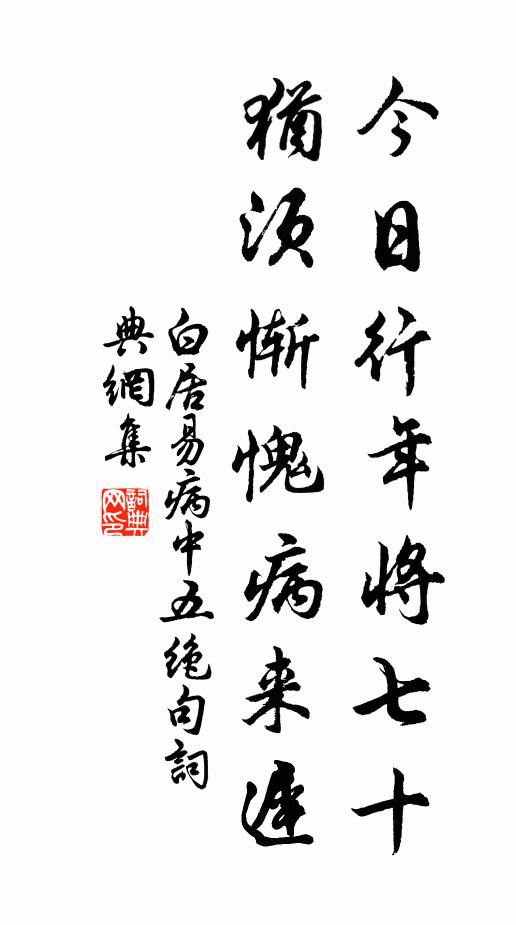 今日行年將七十
猶須慚愧病来遲
白居易病中五绝句詞
典網集
詞典网印